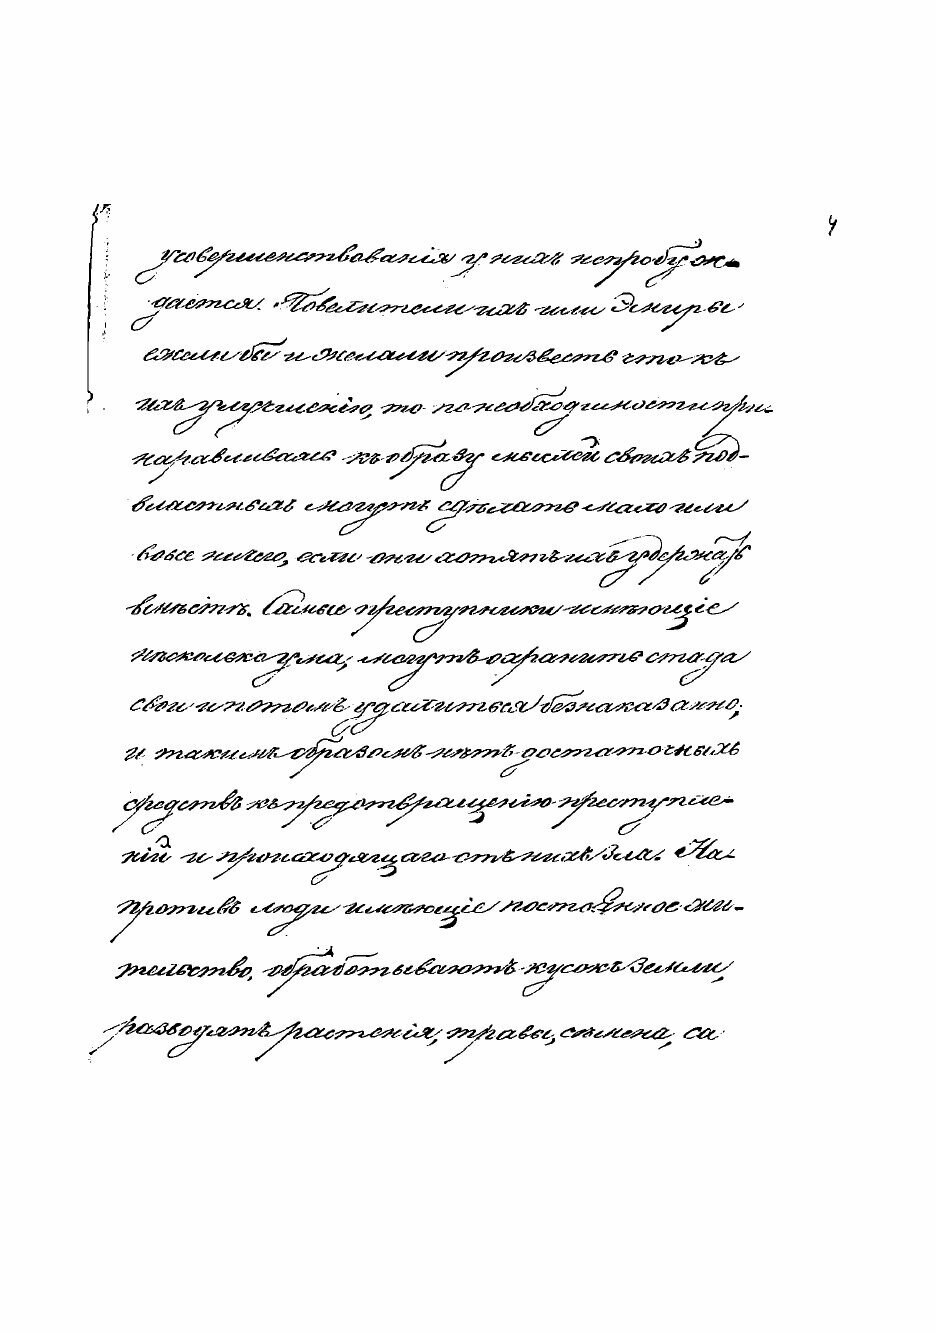 4
усовершенствованія у нихъ непробуж-
дается. Повелители ихъ или Эмиры
ежели бы и желали произвесть что къ
ихъ улучшенію, то по необходимости при-
наравливаясь къ образу мыслей своихъ под-
властныхъ могутъ сдѣлать мало или
вовсе ничего, если они хотятъ ихъ удержать
вмѣстѣ. Самые преступники имѣющіе
нѣсколько ума, могутъ охранить стада
свои и потомъ удалиться безнаказанно,
и такимъ образомъ нѣтъ достаточныхъ
средствъ къ предотвращенію преступле-
ній и происходящаго отъ нихъ зла. На-
противъ люди имѣющіе постоянное жи-
тельство, обработываютъ кусокъ земли,
разводятъ растенія, травы, сѣмена, са